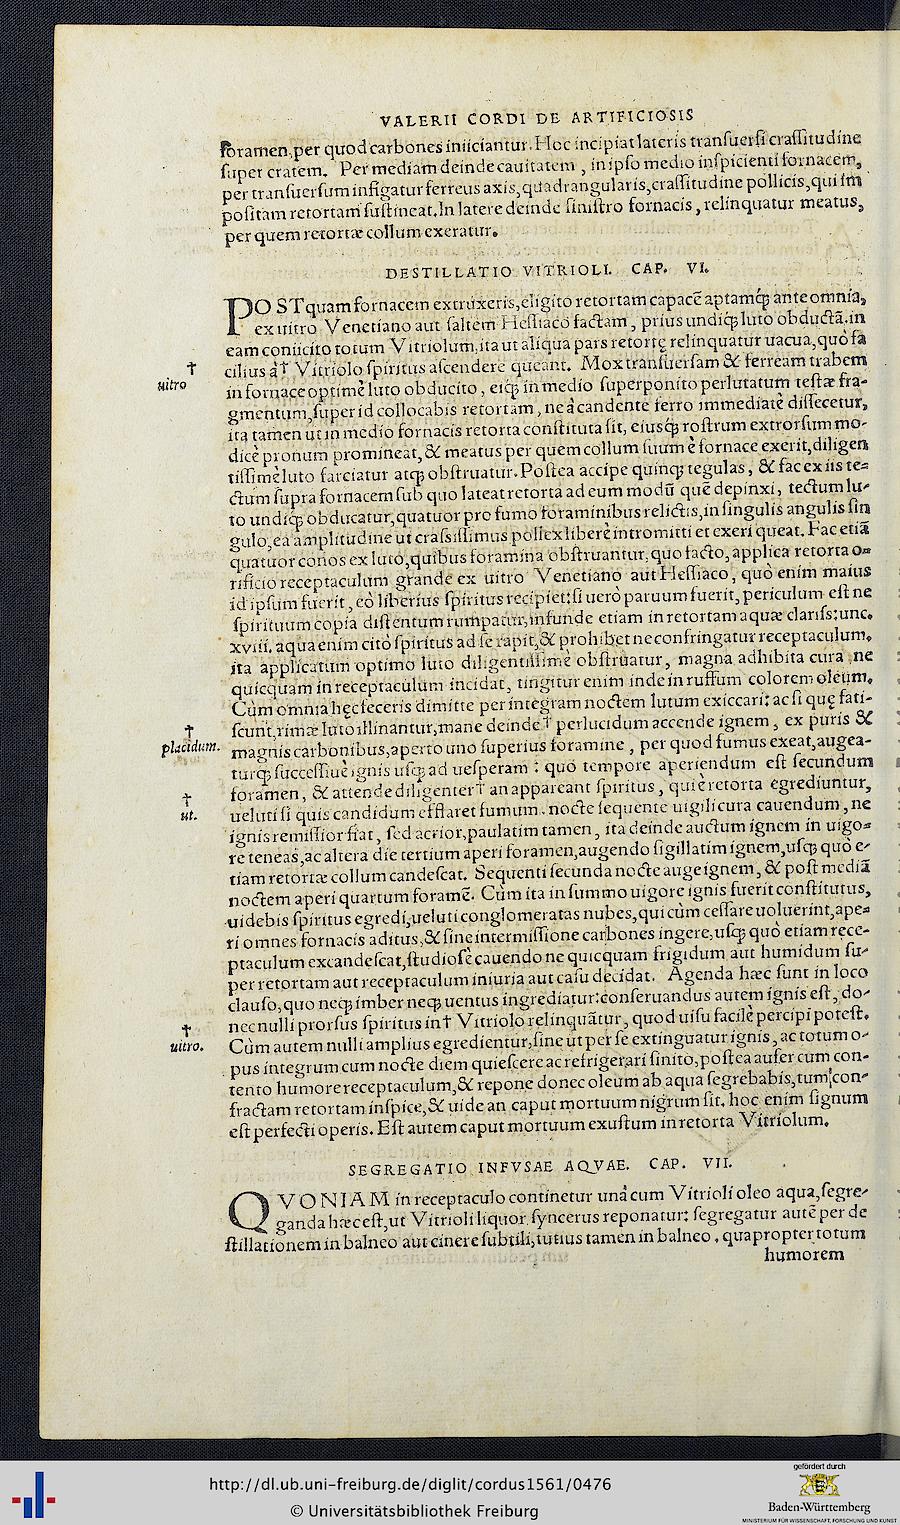 VALERII CORDI DE ARTIFICIOSIS
foramen, per quod carbones iniiciantur. Hoc incipiat lateris transuersi crassitudine
super cratem. Per mediam deinde cauitatem, in ipso medio inspicienti fornacem,
per transuersum infigatur ferreus axis, quadrangularis, crassitudine pollicis, qui im
positam retortam sustineat. In latere deinde sinistro fornacis, relinquatur meatus,
per quem retortæ collum exeratur.
DESTILLATIO VITRIOLI. CAP. VI.
POSTquam fornacem extruxeris, eligito retortam capacē aptamq́ꝫ ante omnia,
ex uitro Venetiano aut saltem Hessiaco factam, prius undiqꝫ luto obductā. in
eam coniicito totum Vitriolum, ita ut aliqua pars retortę relinquatur uacua, quò fa
cilius à † Vitriolo spiritus ascendere queant. Mox transuersam & ferream trabem
† uitro
in fornace optimè luto obducito, eiqꝫ in medio superponito perlutatum testæ fra-
gmentum, super id collocabis retortam, ne à candente ferro immediatè dissecetur,
ita tamen ut in medio fornacis retorta constituta sit, eiusqꝫ rostrum extrorsum mo-
dicè pronum promineat, & meatus per quem collum suum è fornace exerit, diligen
tissimè luto farciatur atqꝫ obstruatur. Postea accipe quinqꝫ tegulas, & fac ex iis te-
ctum supra fornacem sub quo lateat retorta ad eum modū quē depinxi, tectum lu-
to undiqꝫ obducatur, quatuor pro fumo foraminibus relictis, in singulis angulis sin
gulo, ea amplitudine ut crassissimus pollex liberè intromitti et exeri queat. Fac etiā
quatuor conos ex luto, quibus foramina obstruantur, quo facto, applica retortæ o-
rificio receptaculum grande ex uitro Venetiano aut Hessiaco, quò enim maius
id ipsum fuerit, eò liberius spiritus recipiet: si uerò paruum fuerit, periculum est ne
spirituum copia distentum rumpatur, infunde etiam in retortam aquæ clariss: unc.
xviii. aqua enim citò spiritus ad se rapit, & prohibet ne confringatur receptaculum.
ita applicatum optimo luto diligentissimè obstruatur, magna adhibita cura ne
quicquam in receptaculum incidat, tingitur enim inde in ruffum colorem oleum.
Cùm omnia hęc feceris dimitte per integram noctem lutum exiccari: ac si quę fati-
scunt, rimæ luto illinantur, mane deinde † perlucidum accende ignem, ex puris &
† placidum.
magnis carbonibus, aperto uno superius foramine, per quod fumus exeat, augea-
turqꝫ successiuè ignis usqꝫ ad uesperam: quo tempore aperiendum est secundum
foramen, & attende diligenter † an appareant spiritus, qui è retorta egrediuntur,
† ut.
ueluti si quis candidum efflaret fumum. nocte sequente uigili cura cauendum, ne
ignis remissior fiat, sed acrior, paulatim tamen, ita deinde auctum ignem in uigo-
re teneas, ac altera die tertium aperi foramen, augendo sigillatim ignem, usqꝫ quò e-
tiam retortæ collum candescat. Sequenti secunda nocte auge ignem, & post mediā
noctem aperi quartum foramē. Cùm ita in summo uigore ignis fuerit constitutus,
uidebis spiritus egredi, ueluti conglomeratas nubes, qui cùm cessare uoluerint, ape-
ri omnes fornacis aditus, & sine intermissione carbones ingere, usqꝫ quò etiam rece-
ptaculum excandescat, studiosè cauendo ne quicquam frigidum aut humidum su-
per retortam aut receptaculum iniuria aut casu decidat. Agenda hæc sunt in loco
clauso, quo neqꝫ imber neqꝫ uentus ingrediatur: conseruandus autem ignis est, do-
nec nulli prorsus spiritus in † Vitriolo relinquātur, quod uisu facilè percipi potest.
† uitro.
Cùm autem nulli amplius egredientur, sine ut per se extinguatur ignis, ac totum o-
pus integrum cum nocte diem quiescere ac refrigerari sinito, postea aufer cum con-
tento humore receptaculum, & repone donec oleum ab aqua segrebabis, tum con-
fractam retortam inspice, & uide an caput mortuum nigrum sit. hoc enim signum
est perfecti operis. Est autem caput mortuum exustum in retorta Vitriolum.
SEGREGATIO INFVSAE AQVAE. CAP. VII.
QVONIAM in receptaculo continetur unà cum Vitrioli oleo aqua, segre-
ganda hæc est, ut Vitrioli liquor syncerus reponatur: segregatur autē per de
stillationem in balneo aut cinere subtili, tutius tamen in balneo, quapropter totum
humorem
http://dl.ub.uni-freiburg.de/diglit/cordus1561/0476
© Universitätsbibliothek Freiburg
gefördert durch
Baden-Württemberg
MINISTERIUM FÜR WISSENSCHAFT, FORSCHUNG UND KUNST